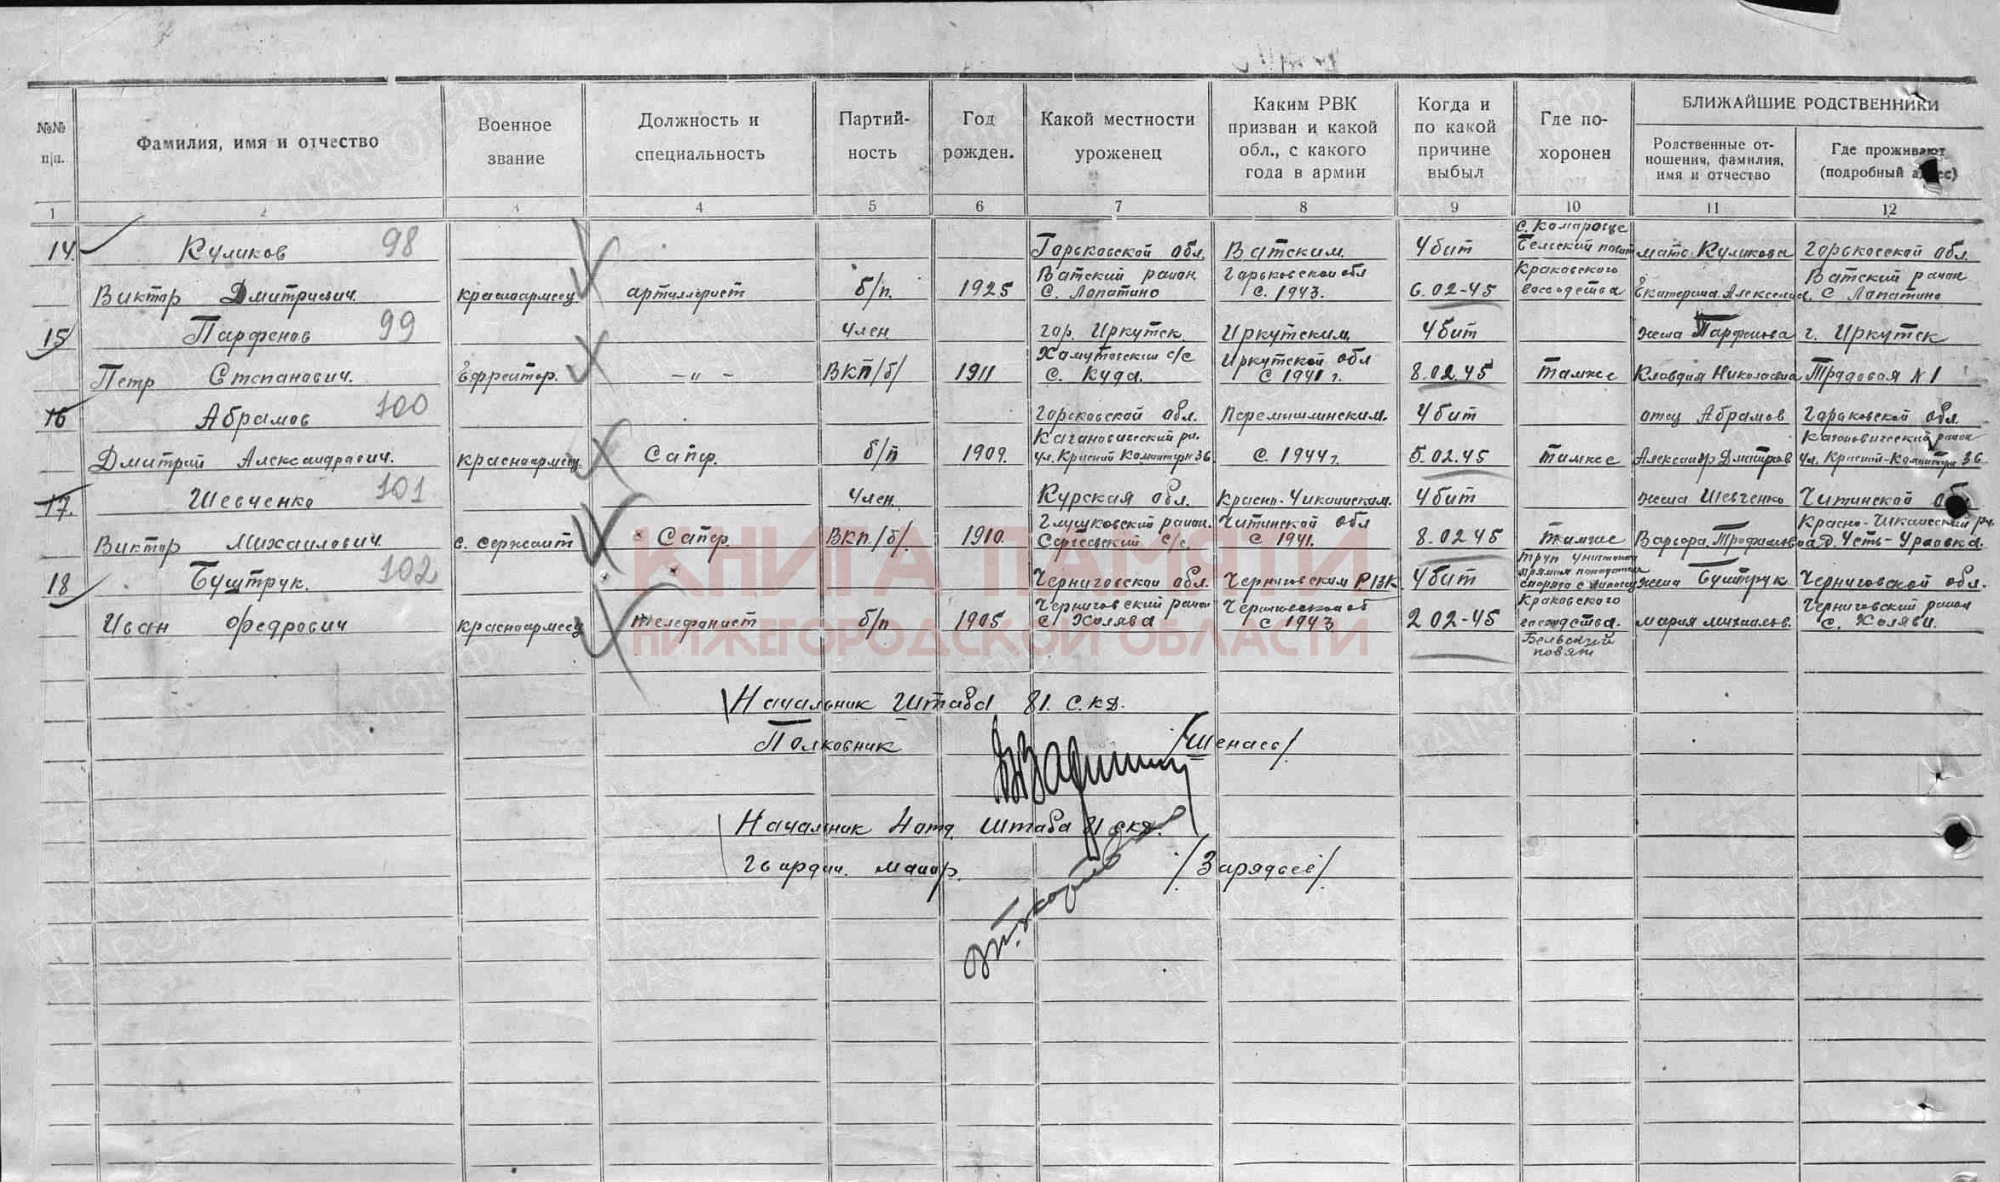 №№ п/п.
Фамилия, имя и отчество
Военное звание
Должность и специальность
Партий-ность
Год рожден.
Какой местности уроженец
Каким РВК призван и какой обл., с какого года в армии
Когда и по какой причине выбыл
Где по-хоронен
БЛИЖАЙШИЕ РОДСТВЕННИКИ
Родственные от-ношения, фамилия, имя и отчество
Где проживают (подробный адрес)
1 2 3 4 5 6 7 8 9 10 11 12
с. Комаровце
14. Куликов 98 Горьковской обл. Ватским Убит Бельский повят мать Куликова Горьковской обл.
Ватский район Горьковской обл Краковского Ватский район
Виктор Дмитриевич. красноармеец артиллерист б/п. 1925 С. Лопатино С. 1943. 6.02-45 воеводства Екатерина Алексеев. С Лопатино
15 Парфенов 99 Член гор. Иркутск Иркутским Убит жена Парфенова г. Иркутск
Хомутовский с/с Иркутской обл
Петр Степанович. Ефрейтор. — „ — ВКП/б/ 1911 С. Куда. С 1941 г. 8.02.45 Тамже Клавдия Николаевна Трядовая N 1
16 Абрамов 100 Горьковской обл. Перемышлинским. Убит отец Абрамов Горьковской обл.
Кагановический рн. Кагановический район
Дмитрий Александрович. красноармеец Сапер. б/п 1909. ул. Красной Коминтерн 36 С 1944 г. 5.02.45 тамже Александр Дмитров ул. Красной-Коминтерн 36
17. Шевченко 101 Член. Курская обл. Красно-Чикойским. Убит жена Шевченко Читинской об
Глушковский район. Читинской обл Красно-Чикойский рн.
Виктор Михаилович. с. сержант Сапер. ВКП/б/. 1910. Сергеевский с/с. С 1941. 8.0245 тамже Варвара Трофимовна д. Усть-Урловка.
18 Буштрук. 102 Черниговской обл. Черниговским РВК Убит жена Буштрук Черниговской обл.
Черниговский район Черниговской об Краковского Черниговский район
Иван Федрович красноармеец телефонист б/п 1905 с Холява С 1943 2 02-45 воеводства. мария михаилов. С. Холяви.
Бельский повят
Начальник Штаба 81. с.к.д.
Полковник /Шенаев/
Начальник 4отд. Штаба 81 скд.
Гвардии. маиор. /Зарядьев/
КНИГА ПАМЯТИ
НИЖЕГОРОДСКОЙ ОБЛАСТИ